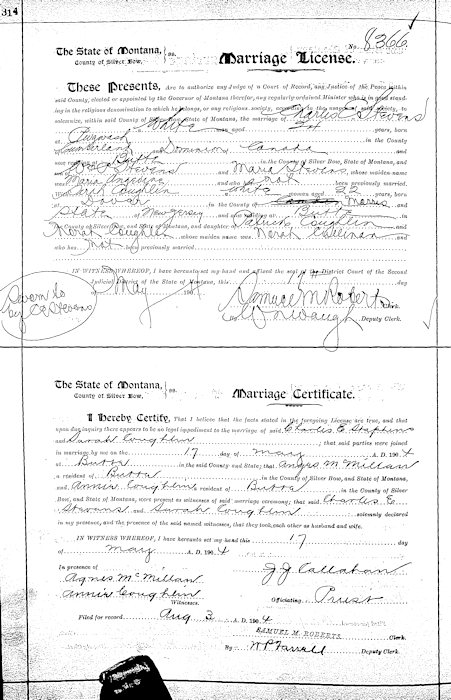 314
The State of Montana,
County of Silver Bow, ss.
Marriage License.
No. 8366
These Presents, Are to authorize any Judge of a Court of Record, any Justice of the Peace within
said County, elected or appointed by the Governor of Montana therefor, any regularly ordained Minister who is in good stand-
ing in the religious denomination to which he belongs, or any religious society, to
solemnize, within said County of Silver Bow, State of Montana, the marriage of Charles E Stevens
White man aged years, born
at Pugwash in the County
Cumberland Dominion Canada
and now resident Butte in the County of Silver Bow, State of Montana, and
Stevens and Maria Stevens, whose maiden name
was Maria and who has not been previously married,
and Sarah Coughlin White woman aged 22 years, born
at Dover in the County of Morris
State of New Jersey and now residing at Butte in
the County of Silver Bow, State of Montana, and daughter of Patrick Coughlin and
Norah Coughlin whose maiden name was Norah
who has not previously married.
IN WITNESS WHEREOF, I have hereunto set my hand and affixed the seal of the District Court of the Second
Judicial District of the State of Montana, this 17 day
of May 1904
Sworn to
by C E Stevens
Samuel M Roberts Clerk.
By Deputy Clerk.
The State of Montana,
County of Silver Bow, ss.
Marriage Certificate.
I Hereby Certify, That I believe that the facts stated in the foregoing License are true, and that
upon due inquiry there appears to be no legal impediment to the marriage of said Charles E Stephens
and Sarah Coughlin, that said parties were joined
in marriage, by me on the 17 day of May A. D. 1904
at Butte in the said County and State; that Anges M Millan
a resident of Butte in the County of Silver Bow, and State of Montana,
and Annie Coughlin a resident of Butte in the County of Silver
Bow, and State of Montana, were present as witnesses of said marriage ceremony; that said Charles E.
Stevens and Sarah Coughlin solemnly declared
in my presence, and the presence of the said named witnesses, that they took each other as husband and wife.
IN WITNESS WHEREOF, I have hereunto set my hand this 17 day
of May A. D. 1904
In presence of
Agnes McMillan
J J Callahan
Annie Coughlin
Witnesses.
Officiating Priest
Filed for record Aug 3 A. D. 1904
SAMUEL M. ROBERTS Clerk.
By W P Farrell Deputy Clerk.